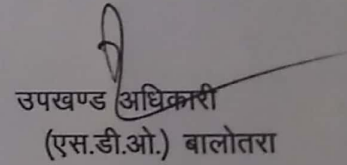 उपखण्ड अधिकारी
(एस.डी.ओ.) बालोतरा